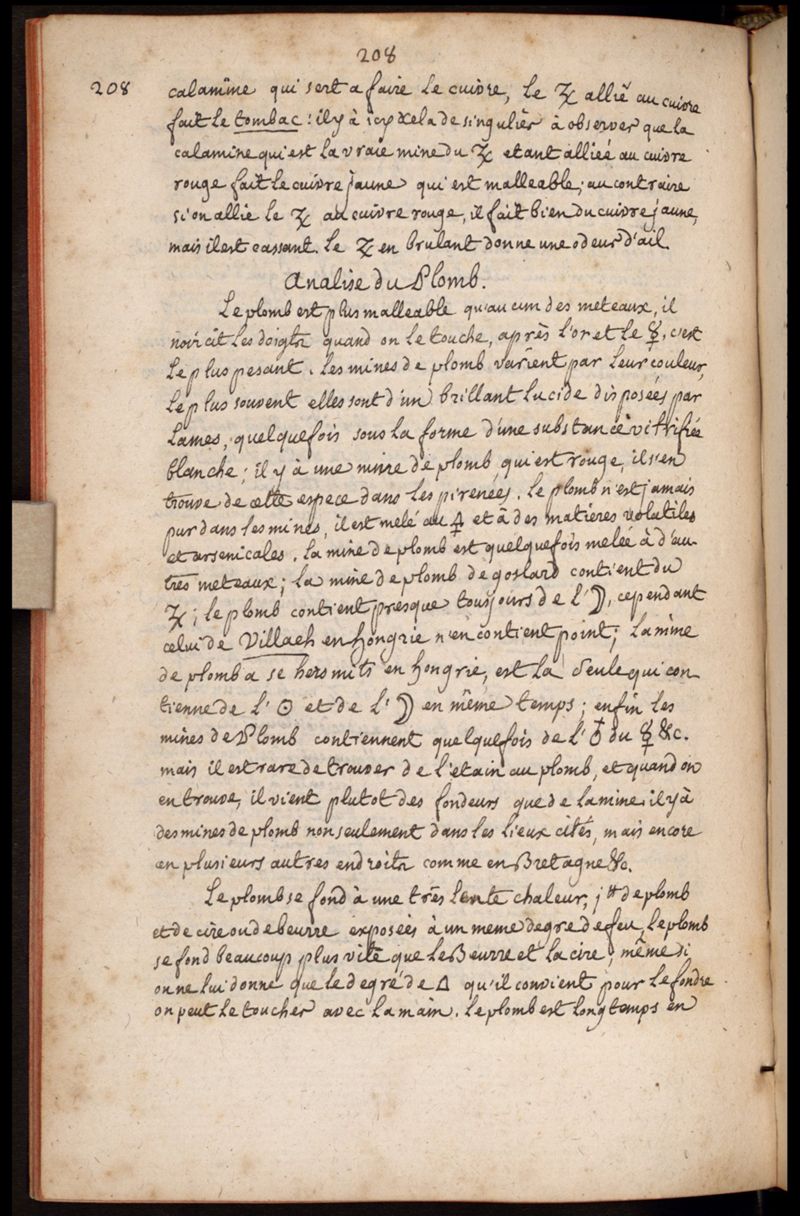 208
208 calamine qui sert a faire le cuivre, le Z allié au cuivre
fait le tombac : il y à icy cela de singulier à observer que la
calamine qui est la vraie mine du Z etant alliée au cuivre
rouge fait le cuivre jaune qui est malleable; au contraire
si on allie le Z au cuivre rouge, il fait bien du cuivre jaune,
mais il est cassant. le Z en brulant donne une odeur d'ail.
Analise du Plomb.
Le plomb est plus malleable qu'aucun des meteaux, il
noircit les doigts quand on le touche, après l'or et le ☿, c'est
le plus pesant. les mines de plomb varient par leur couleur,
le plus souvent elles sont d'un brillant lucide disposées par
lames, quelquefois sous la forme d'une substance vitrifiée
blanche; il y à une mine de plomb qui est rouge, il s'en
trouve de cette espece dans les pirenées. le plomb n'est jamais
pur dans les mines, il est melé au 🜍 et à des matieres volatiles
et arsenicales. la mine de plomb est quelquefois melée à d'au-
tres meteaux; la mine de plomb de goslard contient du
Z; le plomb contient presque tousjours de l'☽, cependant
celui de Villach en hongrie n'en contient point; la mine
de plomb a se hersmits en hongrie, est la seule qui con-
tienne de l'☉ et de l'☽ en même temps; enfin les
mines de Plomb contiennent quelquefois de l'♁ du ☿ &c.
mais il est rare de trouver de l'etain au plomb, et quand on
en trouve, il vient plutot des fondeurs que de la mine. il y à
des mines de plomb non seulement dans les lieux cités, mais encore
en plusieurs autres endroits comme en Bretagne &c.
Le plomb se fond à une très lente chaleur, j ℔ de plomb
et de cire ou de beurre exposées à un meme degre de feu, le plomb
se fond beaucoup plus vite que le Beurre et la cire, même si
on ne lui donne que le degré de △ qu'il convient pour le fondre
on peut le toucher avec la main. le plomb est longtemps en